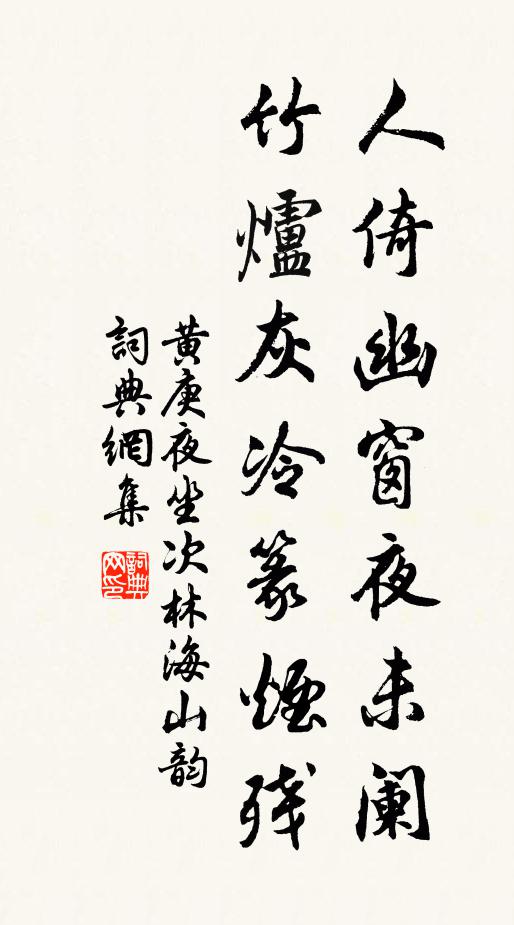 人倚幽窗夜未阑
竹爐灰冷篆煙残
黄庚夜坐次林海山韵
詞典網集
詞典
网印